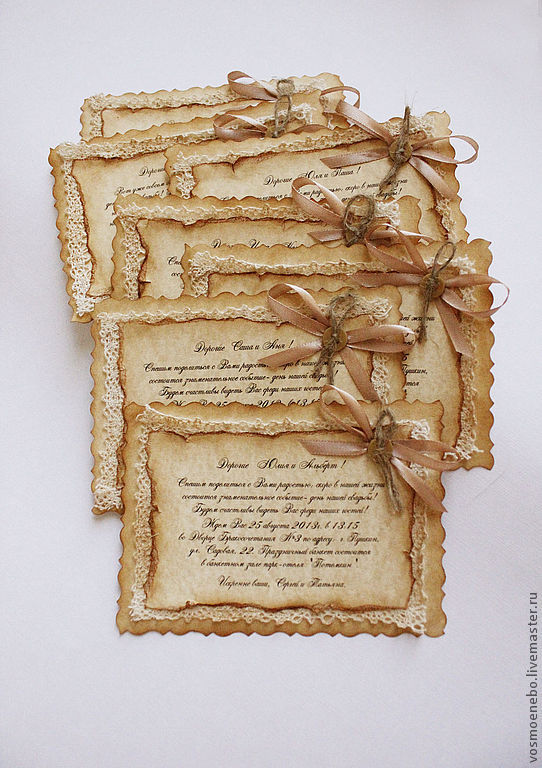 Дорогие Юля и Паша !
Дорогие Саша и Аня !
Спешим поделиться с Вами радостью, скоро в нашей
состоится знаменательное событие- день нашей
Будем счастливы видеть Вас среди наших гостей !
Дорогие Юлия и Альберт !
Спешим поделиться с Вами радостью, скоро в нашей жизни
состоится знаменательное событие- день нашей свадьбы!
Будем счастливы видеть Вас среди наших гостей!
Ждем Вас 25 августа 2013г. в 13.15
во Дворце Бракосочетания №3 по адресу: г. Пушкин,
ул. Садовая, 22. Праздничный банкет состоится
в банкетном зале парк-отеля "Потемкин"
Искренне ваши, Сергей и Татьяна.
vosmoenebo.livemaster.ru